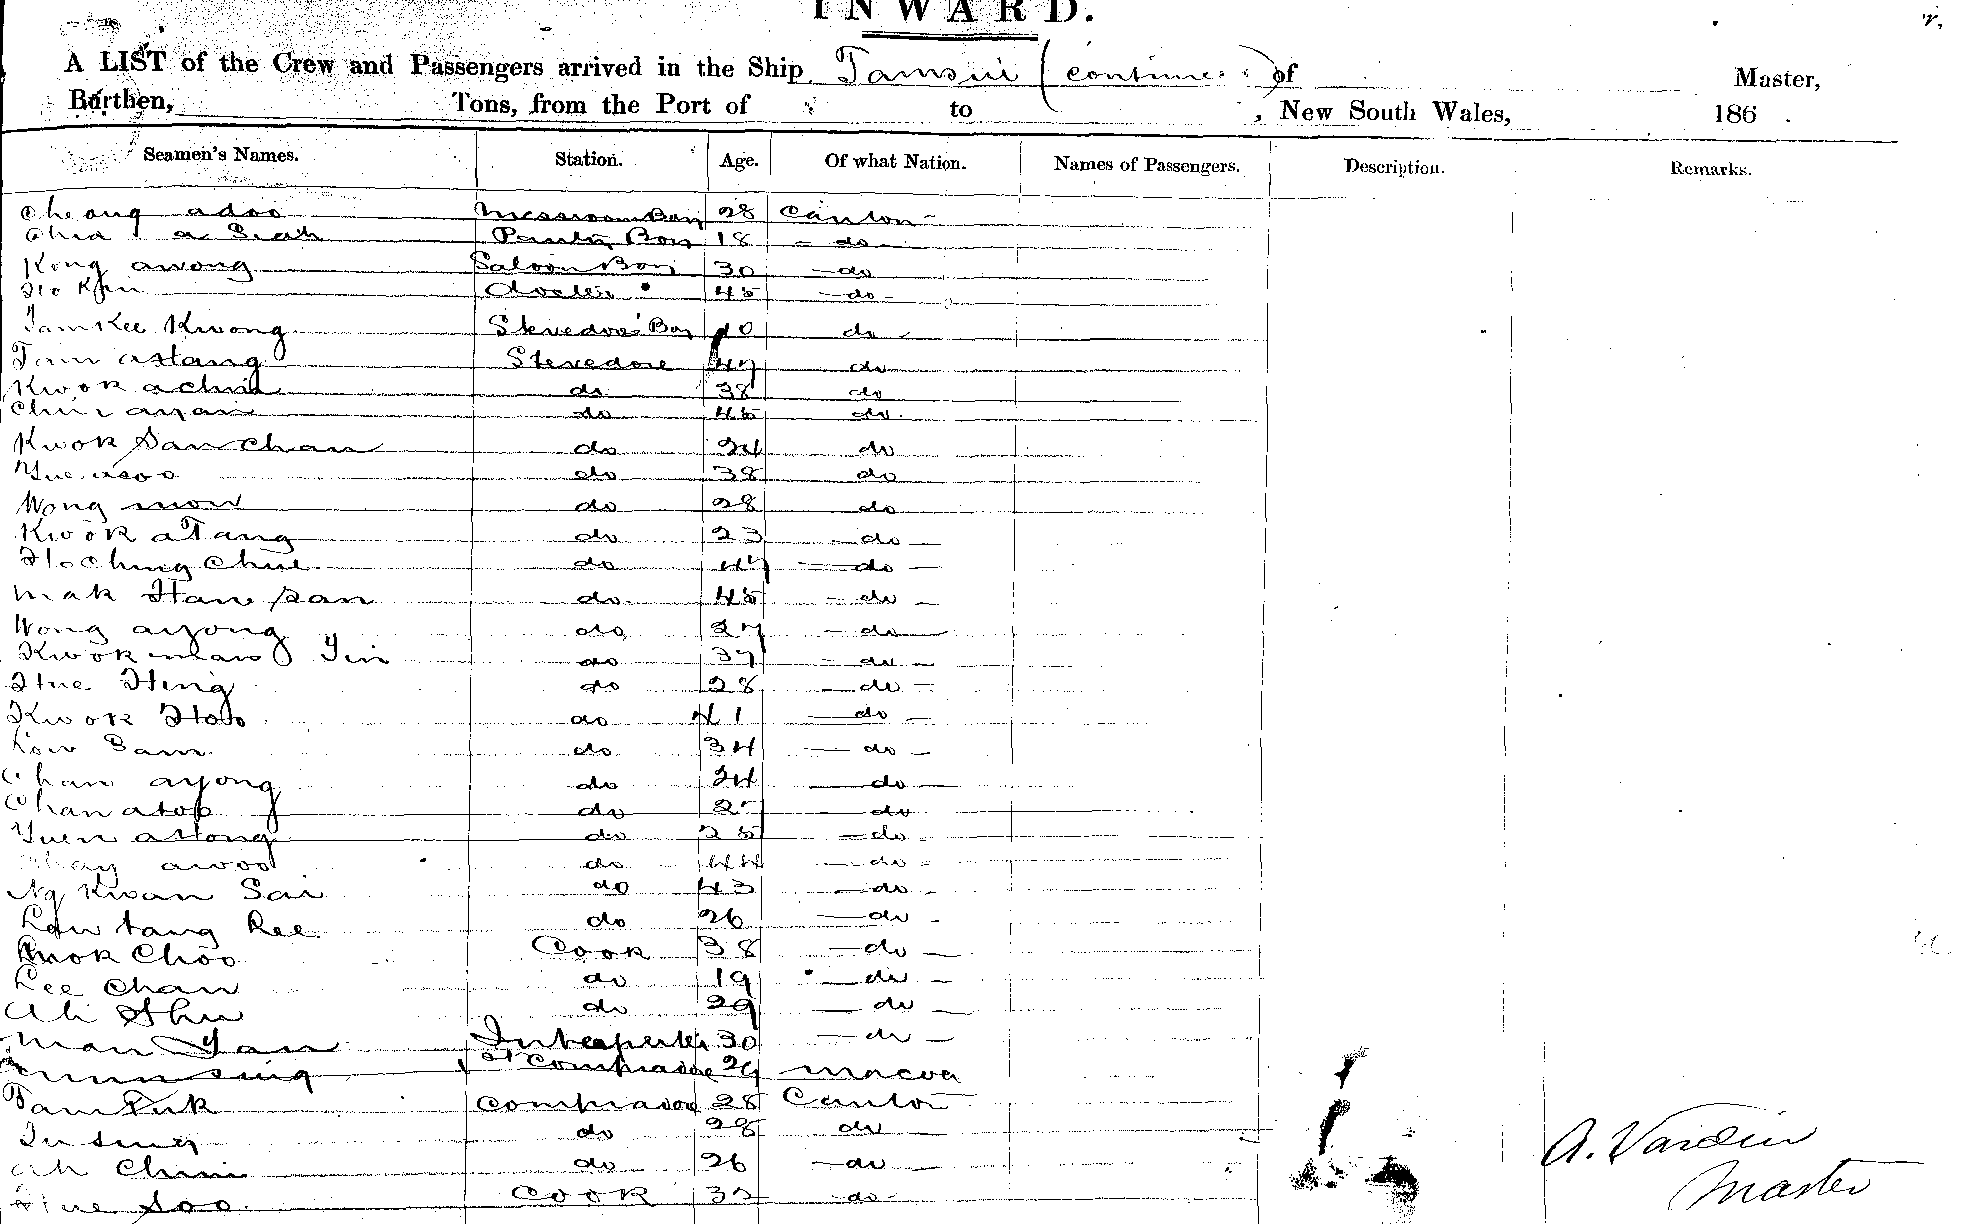 INWARD.
A LIST of the Crew and Passengers arrived in the Ship Tamsui (continued) of Master,
Burthen, Tons, from the Port of to , New South Wales, 186 .
Seamen's Names. Station. Age. Of what Nation. Names of Passengers. Description. Remarks.
Cheong adoo Messroom Boy 28 Canton
a Seah Pantry Boy 18 do
Kong awong Saloon Boy 30 do
Ho 45 do
Tam Kee Kwong Stevedore Boy do
Tam Stevedore 47 do
Kwok achin do 38 do
ayan do 45 do
Kwok San Chan do 24 do
Yue asoo do 38 do
Wong mow do 28 do
Kwok aTang do 23 do
Ho Ching Chue do 47 do
Mak Han San do 45 do
Wong ayong do 27 do
Kwok Yin do 37 do
Hue Hing do 28 do
Kwok Hoo do 41 do
Low Sam do 34 do
Chan ayong do 24 do
Chan atop do do
Yuen do 25 do
awoo do 44 do
Ng Kwan Sai do 43 do
Low tang Kee do 26 do
Choo Cook 38 do
Lee Chan do 19 do
Ah Shu do 29 do
Man Yan Interpreter 30 do
sing Compradore 29 Macoa
Tam Compradore 28 Canton
do 28 do
Ah Chun do 26 do
Hue Soo Cook 32 do
A. Vardin
Master